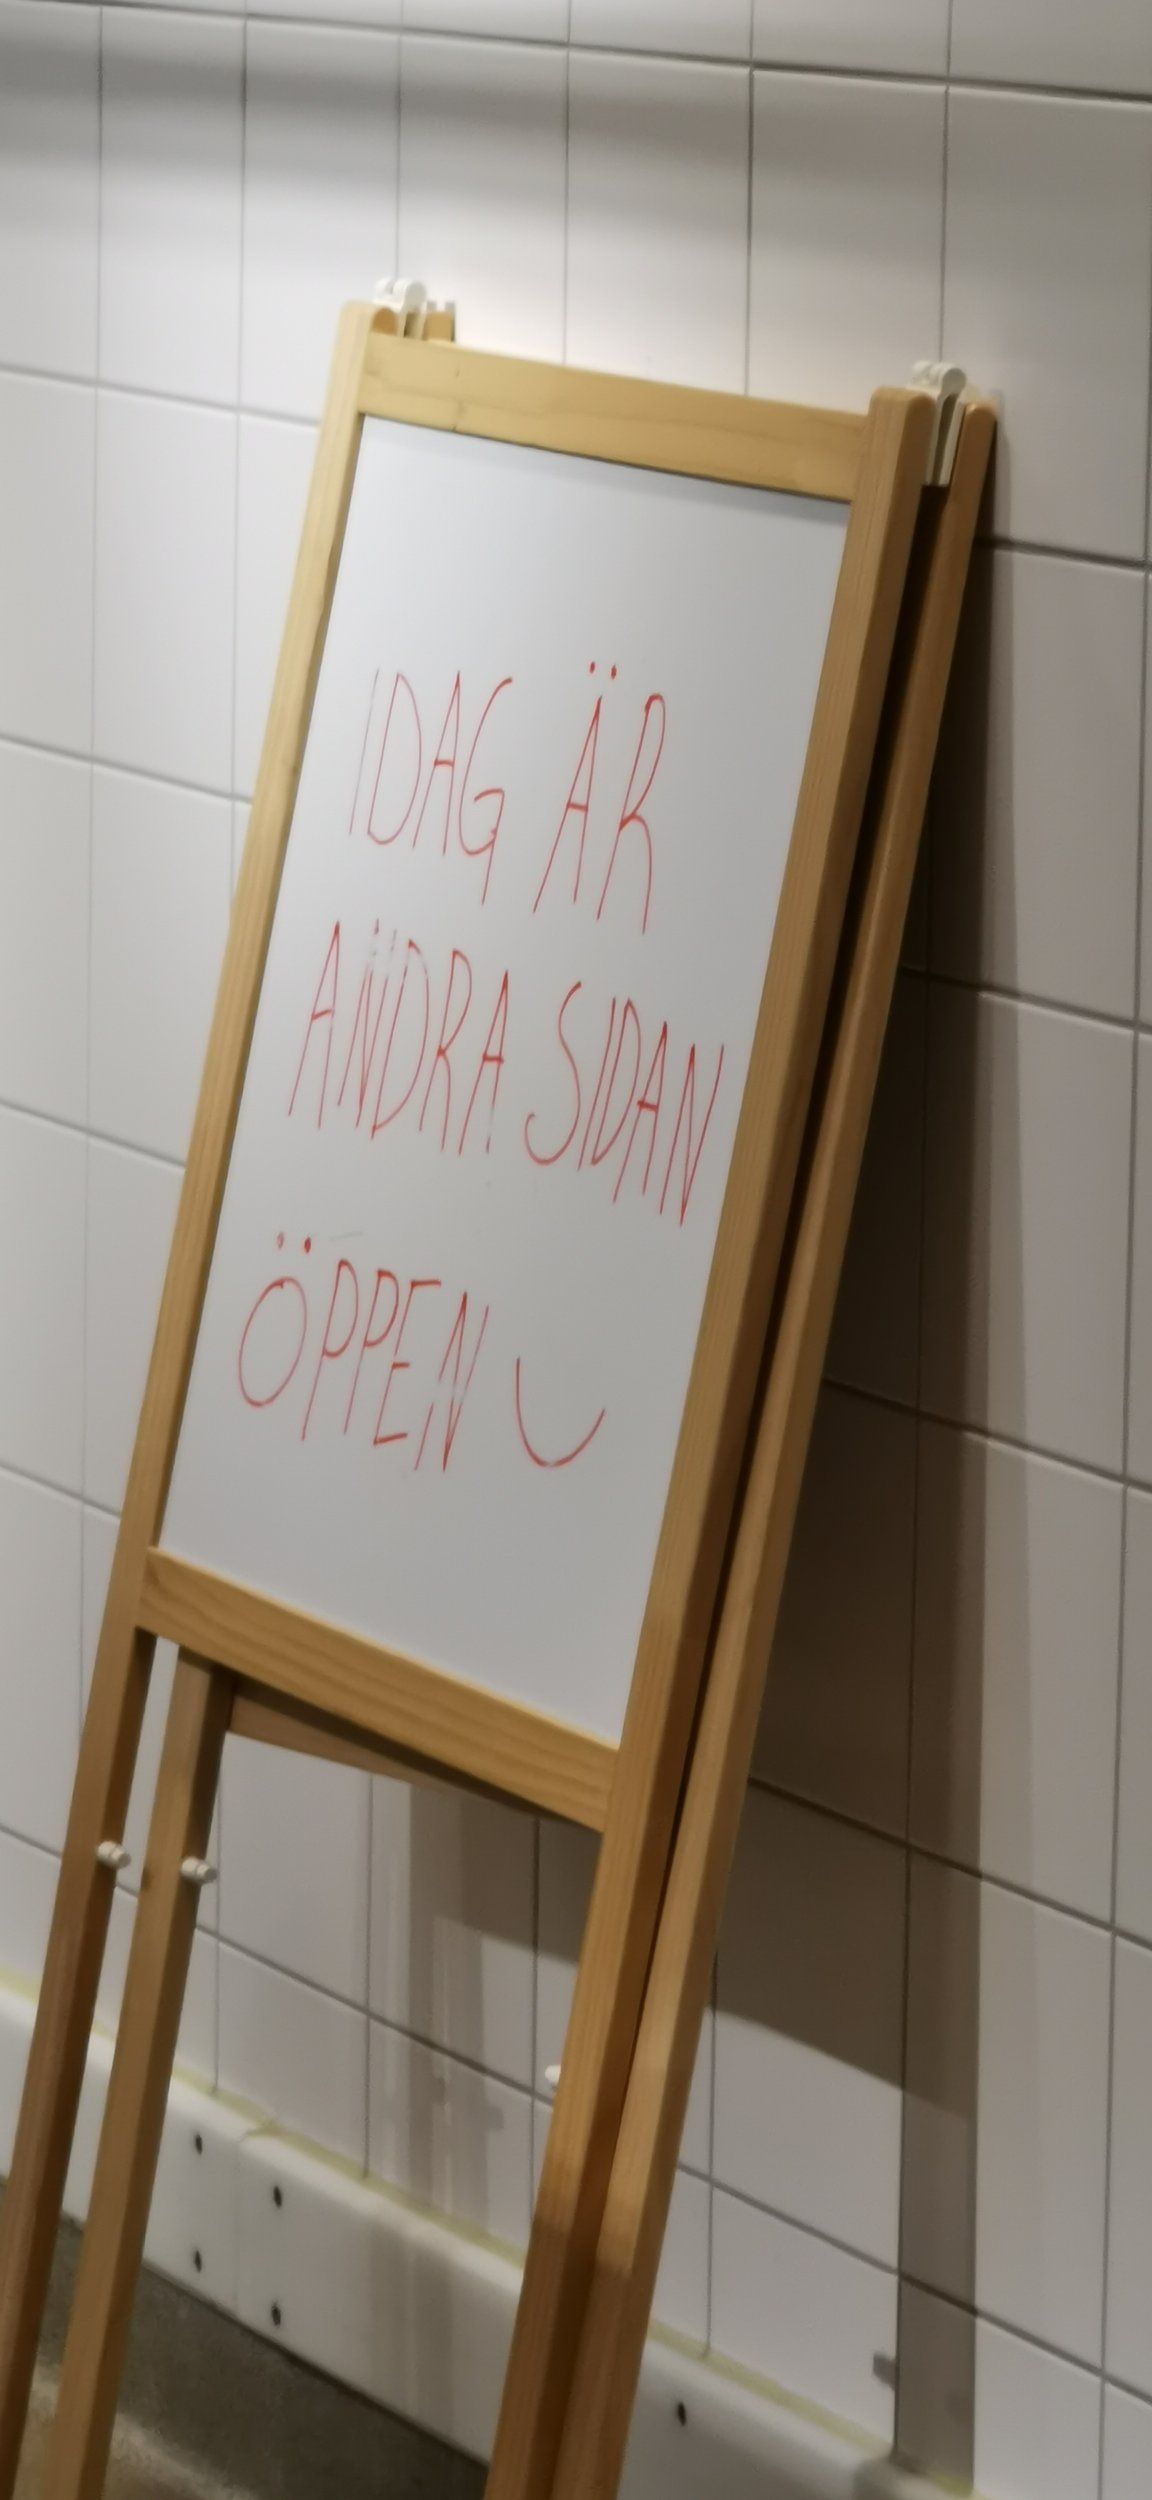 IDAG ÄR
ANDRA SIDAN
ÖPPEN